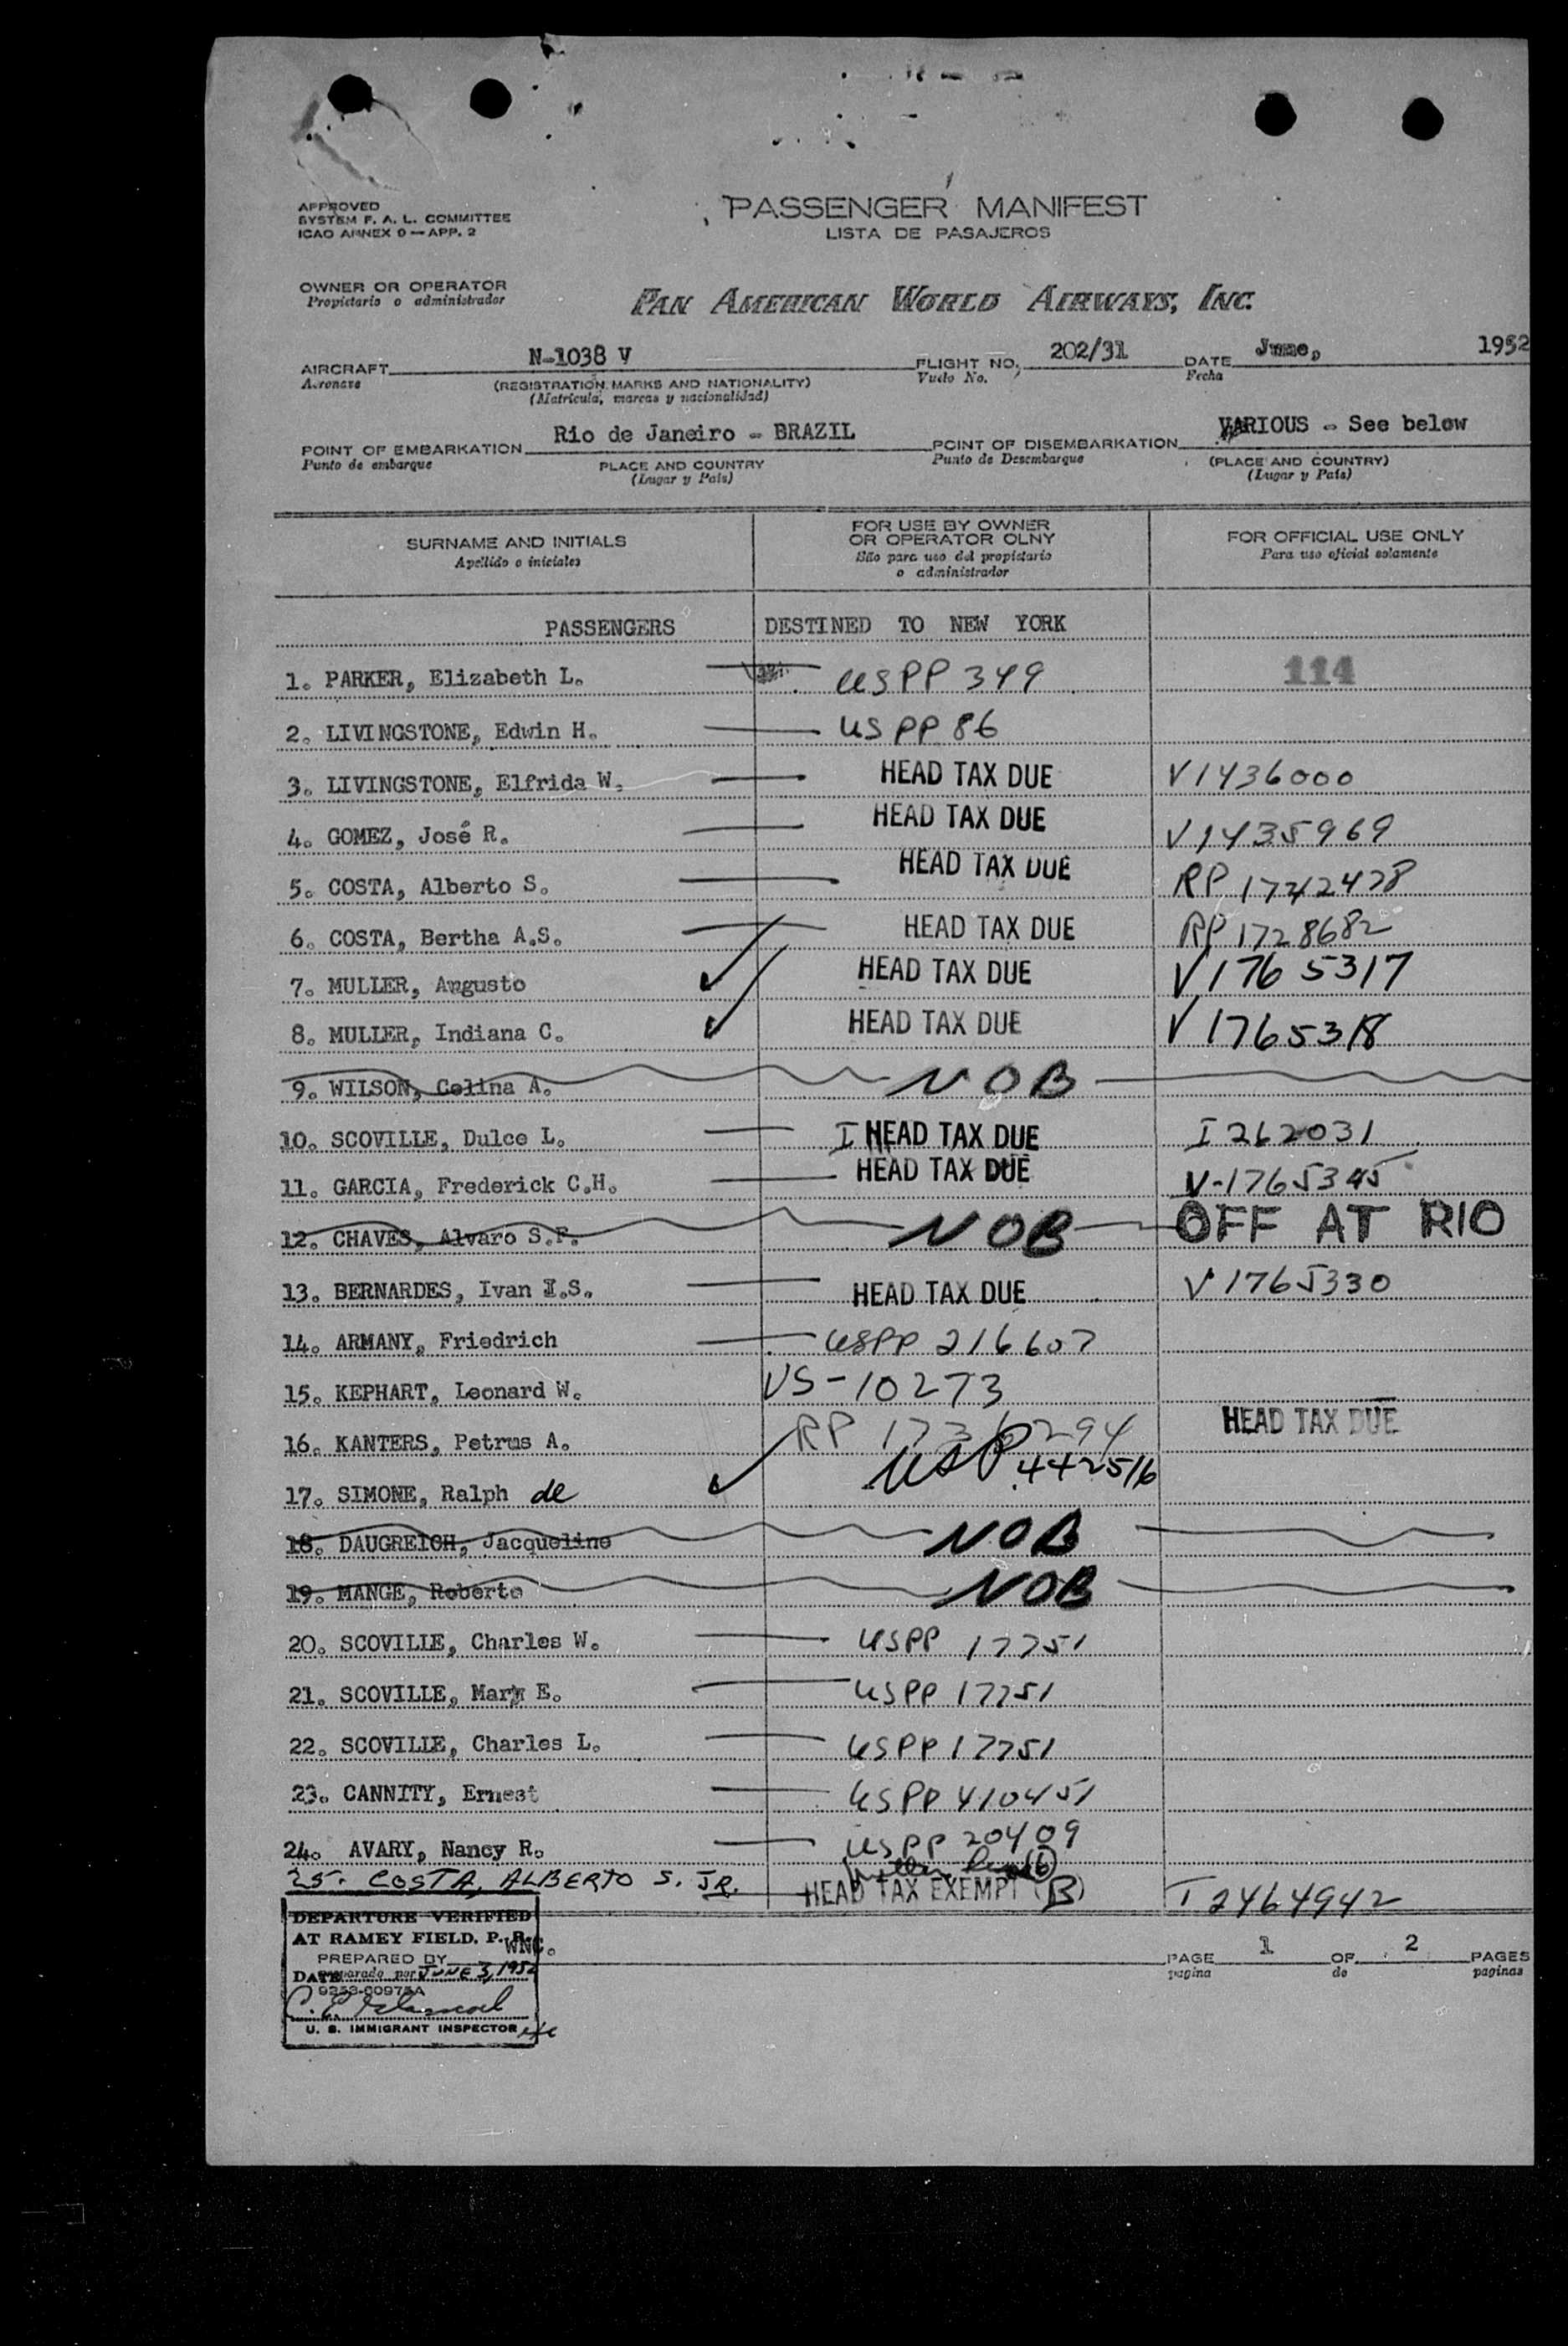 APPROVED
SYSTEM F. A. L. COMMITTEE
ICAO ANNEX 9 — APP. 2
PASSENGER MANIFEST
LISTA DE PASAJEROS
OWNER OR OPERATOR
Propietario o administrador
PAN AMERICAN WORLD AIRWAYS, INC.
AIRCRAFT N-1038 V FLIGHT NO. 202/31 DATE June, 1952
Aeronave (REGISTRATION MARKS AND NATIONALITY) Vuelo No. Fecha
(Matrícula, marcas y nacionalidad)
POINT OF EMBARKATION Rio de Janeiro - BRAZIL POINT OF DISEMBARKATION VARIOUS - See below
Punto de embarque PLACE AND COUNTRY Punto de Desembarque (PLACE AND COUNTRY)
(Lugar y País) (Lugar y País)
SURNAME AND INITIALS FOR USE BY OWNER OR OPERATOR OLNY FOR OFFICIAL USE ONLY
Apellido o iniciales Sño para uso del propietario o administrador Para uso oficial solamente
PASSENGERS DESTINED TO NEW YORK
1. PARKER, Elizabeth L. USPP 349 114
2. LIVINGSTONE, Edwin H. US PP 86
3. LIVINGSTONE, Elfrida W. HEAD TAX DUE V1436000
4. GOMEZ, José R. HEAD TAX DUE V1435969
5. COSTA, Alberto S. HEAD TAX DUE RP 1742478
6. COSTA, Bertha A.S. HEAD TAX DUE RP 1728682
7. MULLER, Augusto HEAD TAX DUE V1765317
8. MULLER, Indiana C. HEAD TAX DUE V1765318
9. WILSON, Celina A. NOB
10. SCOVILLE, Dulce L. I HEAD TAX DUE I 262031
11. GARCIA, Frederick C.H. HEAD TAX DUE V-1765345
12. CHAVES, Alvaro S.F. NOB OFF AT RIO
13. BERNARDES, Ivan I.S. HEAD TAX DUE V1765330
14. ARMANY, Friedrich USPP 216607
15. KEPHART, Leonard W. VS-10273
16. KANTERS, Petrus A. RP 1736294 HEAD TAX DUE
17. SIMONE, Ralph de USP 442516
18. DAUGREICH, Jacqueline NOB
19. MANGE, Roberto NOB
20. SCOVILLE, Charles W. USPP 17751
21. SCOVILLE, Mary E. USPP 17751
22. SCOVILLE, Charles L. USPP 17751
23. CANNITY, Ernest USPP 410451
24. AVARY, Nancy R. USPP 20409
25. COSTA, ALBERTO S. JR. HEAD TAX EXEMPT (B) T 2464942
DEPARTURE VERIFIED
AT RAMEY FIELD, P. R.
PREPARED BY WNC. PAGE 1 OF 2 PAGES
DATE JUNE 3, 1952 pagina de paginas
U. S. IMMIGRANT INSPECTOR